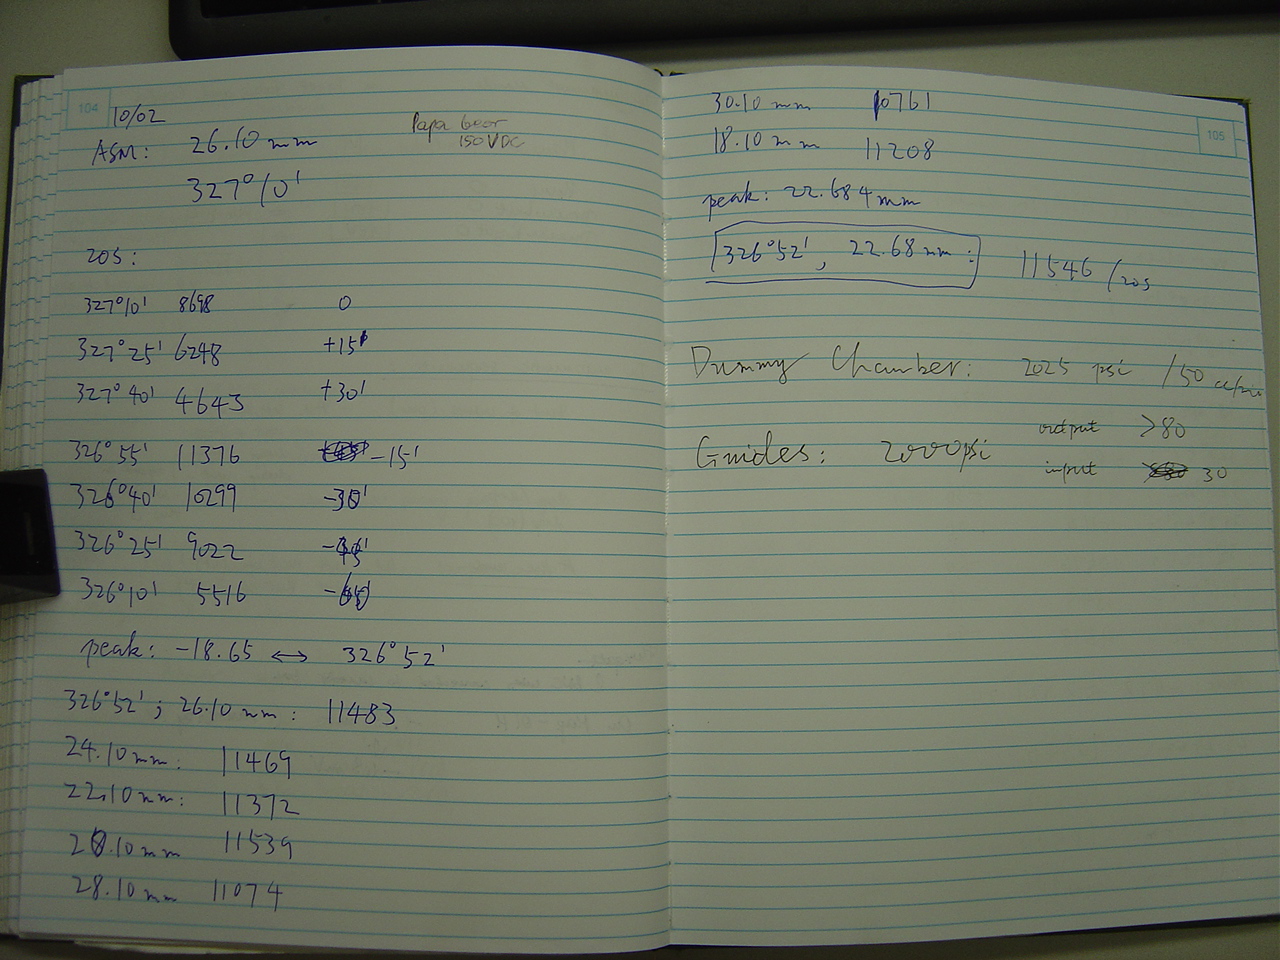 104
10/02
Papa bear
150 VDC
ASM: 26.10 mm
327°10'
20s:
327°10' 8698 0
327°25' 6248 +15'
327°40' 4643 +30'
326°55' 11376 -15'
326°40' 10299 -30'
326°25' 9022 -45'
326°10' 5516
peak: -18.65 ↔ 326°52'
326°52'; 26.10 mm: 11483
24.10 mm: 11469
22.10 mm: 11372
20.10 mm 11539
28.10 mm 11074
105
30.10 mm 10761
18.10 mm 11208
peak: 22.684 mm
326°52', 22.68 mm: 11546 /20s
Dummy Chamber: 2025 psi /50
output >80
Guides: 2000psi
input 30